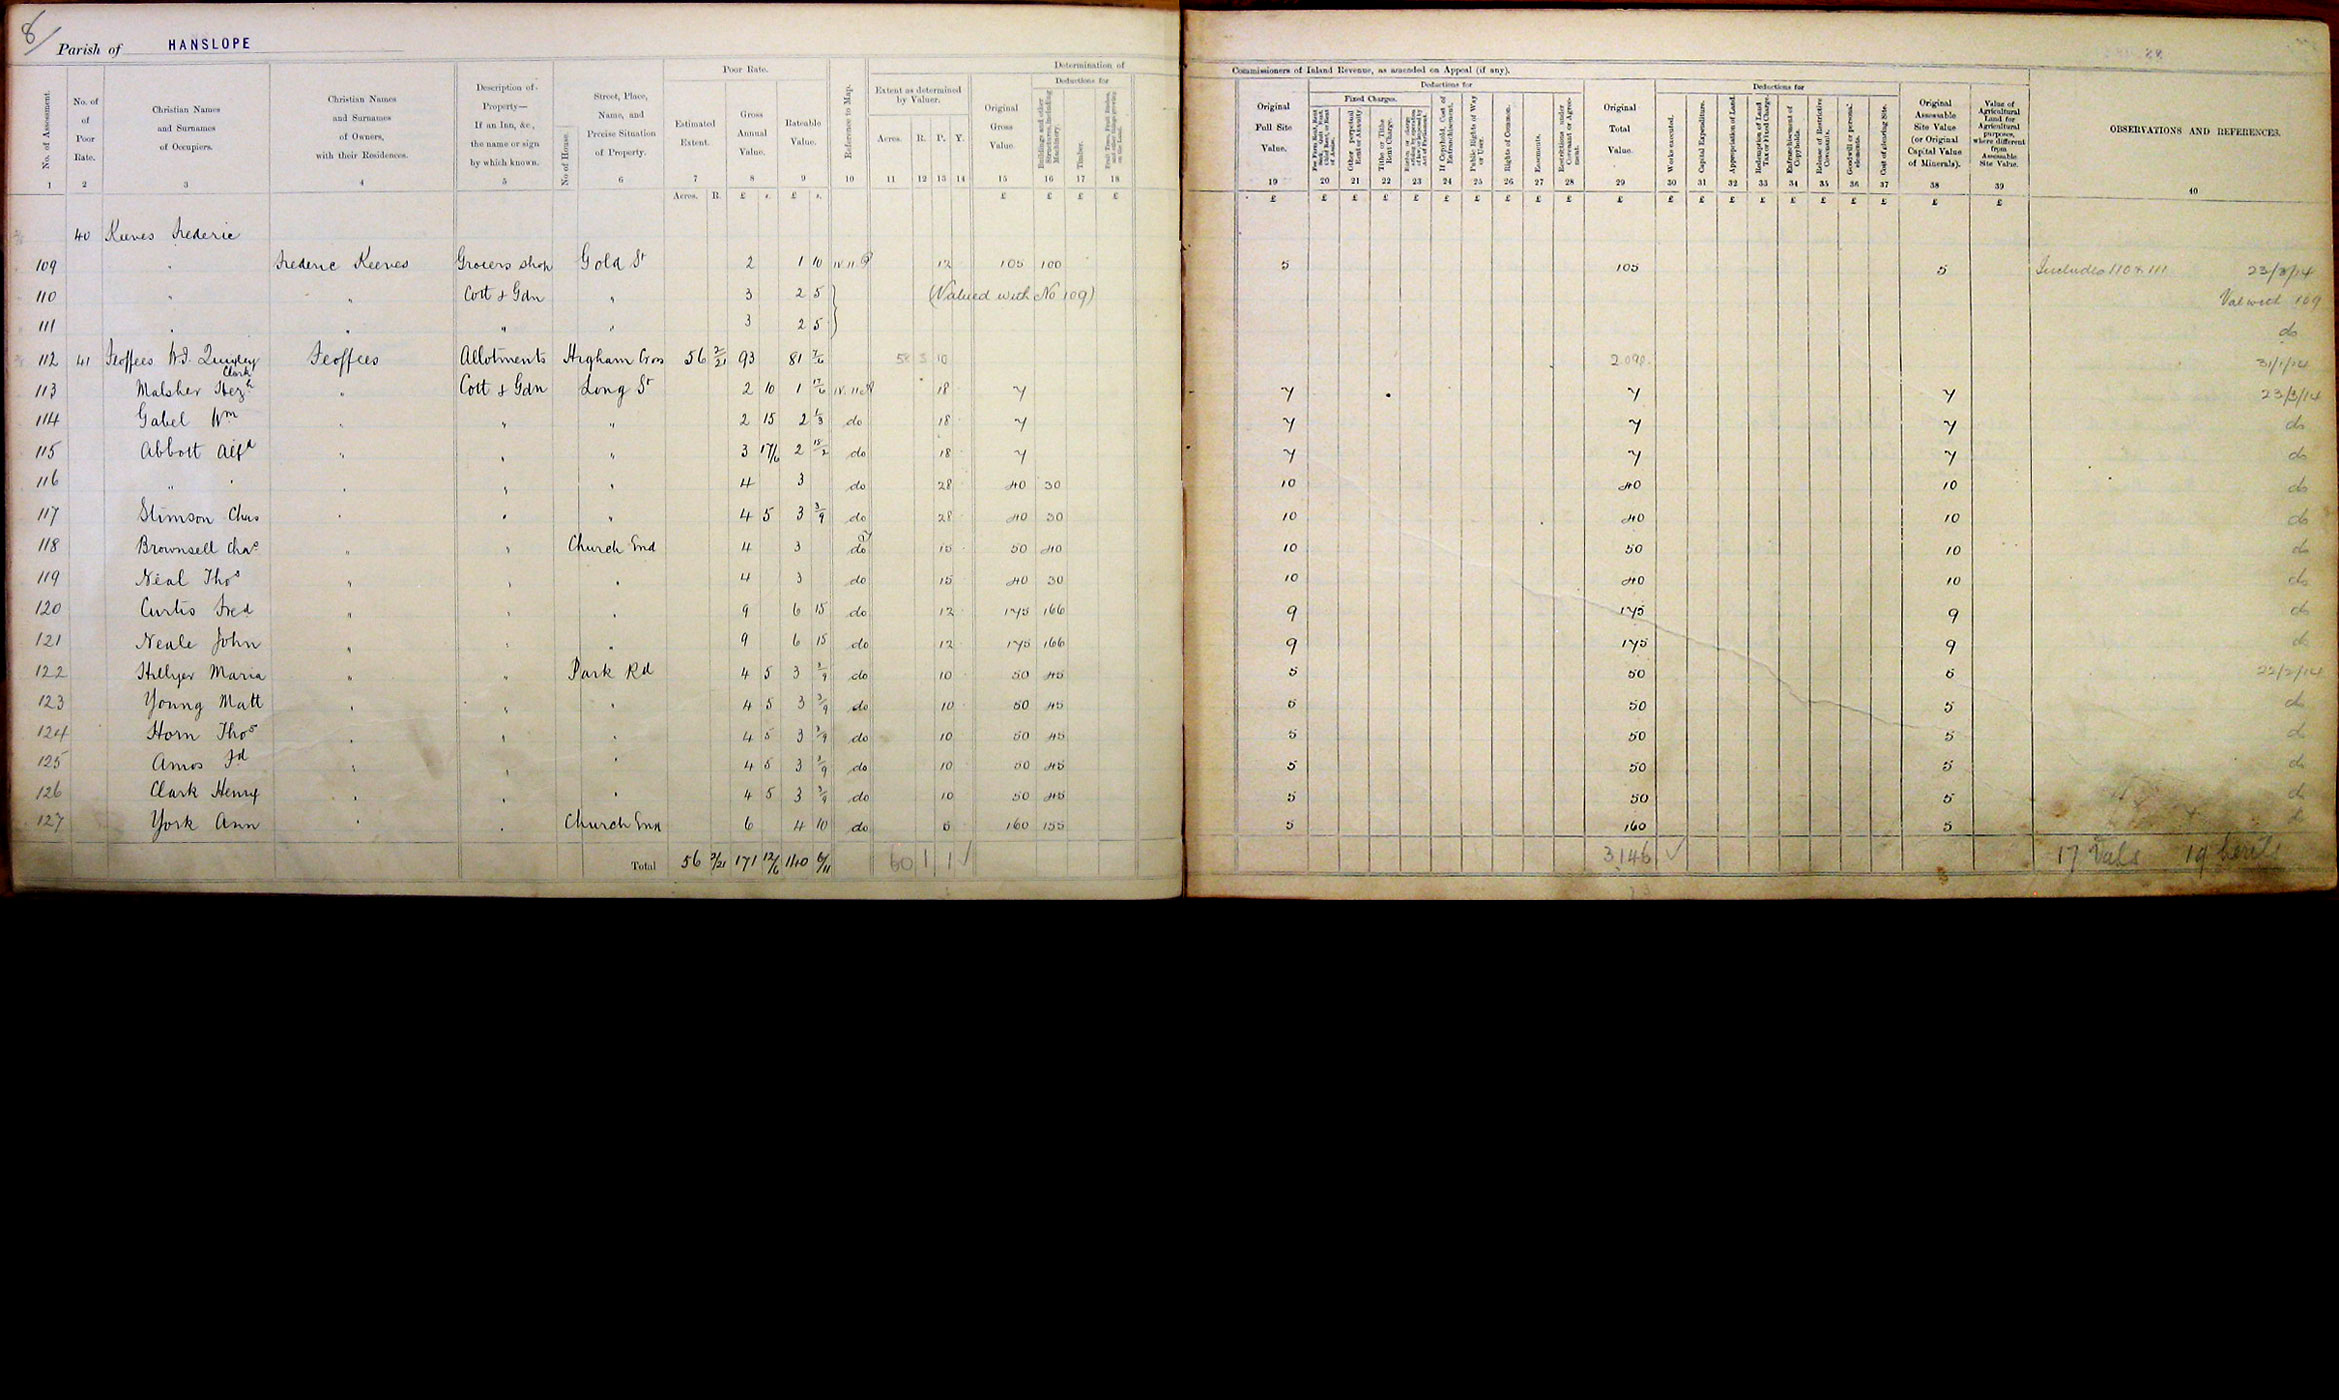 8/
Parish of HANSLOPE
Poor Rate. Determination of
Commissioners of Inland Revenue, as amended on Appeal (if any).
No. of Assessment. No. of Poor Rate. Christian Names and Surnames of Occupiers. Christian Names and Surnames of Owners, with their Residences. Description of Property— If an Inn, &c., the name or sign by which known. No of House. Street, Place, Name, and Precise Situation of Property. Estimated Extent. Gross Annual Value. Rateable Value. Reference to Map. Extent as determined by Valuer. Acres. R. P. Y. Original Gross Value. Deductions for Buildings and other Structures, including Machinery. Timber.
Original Full Site Value. Deductions for Fixed Charges. Other perpetual Rent or Annuity. Tithe or Tithe Rent Charge. If Copyhold, Cost of Enfranchisement. Public Rights of Way or User. Rights of Common. Easements. Restrictions under Covenant or Agreement. Original Total Value. Deductions for Works executed. Capital Expenditure. Appropriation of Land. Redemption of Land Tax or Fixed Charge. Enfranchisement of Copyholds. Release of Restrictive Covenants. Goodwill or personal elements. Cost of clearing Site. Original Assessable Site Value (or Original Capital Value of Minerals). Value of Agricultural Land for Agricultural purposes, where different from Assessable Site Value. OBSERVATIONS AND REFERENCES.
1 2 3 4 5 6 7 8 9 10 11 12 13 14 15 16 17 18 19 20 21 22 23 24 25 26 27 28 29 30 31 32 33 34 35 36 37 38 39 40
Acres. R. £ s. £ s. £ £ £ £ £ £ £ £ £ £ £ £ £ £ £ £ £ £ £ £ £ £ £ £ £
40 Keeves Frederic
109 " Frederic Keeves Grocers shop Gold St 2 1 10 12 105 100 5 105 5 Includes 110 & 111 23/3/14
110 " " Cott & Gdn " 3 2 5 (Valued with No 109) Val with 109
111 " " " " 3 2 5 do
112 41 Feoffees W.J. Clark Feoffees Allotments Higham Cross 56 2/21 93 81 7/6 58 3 10 31/1/14
113 Malsher Hezh " Cott & Gdn Long St 2 10 1 17/6 18 7 7 7 7 23/3/14
114 Gabel Wm " " " 2 15 2 1/3 do 18 7 7 7 7 do
115 Abbott Alfd " " " 3 17/6 2 18/2 do 18 7 7 7 7 do
116 " " " " " 4 3 do 28 40 30 10 40 10 do
117 Stimson Chas " " " 4 5 3 3/9 do 28 40 30 10 40 10 do
118 Brownsell Chas " " Church End 4 3 do 15 50 40 10 50 10 do
119 Neal Thos " " " 4 3 do 15 40 30 10 40 10 do
120 Curtis Fred " " " 9 6 15 do 12 175 166 9 175 9 do
121 Neale John " " " 9 6 15 do 12 175 166 9 175 9 do
122 Hillyer Maria " " Park Rd 4 5 3 3/9 do 10 50 45 5 50 5 22/2/14
123 Young Matt " " " 4 5 3 3/9 do 10 50 45 5 50 5 do
124 Horn Thos " " " 4 5 3 3/9 do 10 50 45 5 50 5 do
125 Amos Jd " " " 4 5 3 3/9 do 10 50 45 5 50 5 do
126 Clark Henry " " " 4 5 3 3/9 do 10 50 45 5 50 5 do
127 York Ann " " Church End 6 4 10 do 5 160 155 5 160 5 do
Total 56 2/21 171 12/6 140 6/11 60 1 1 ✓ 3146 ✓ 17 Vals 19